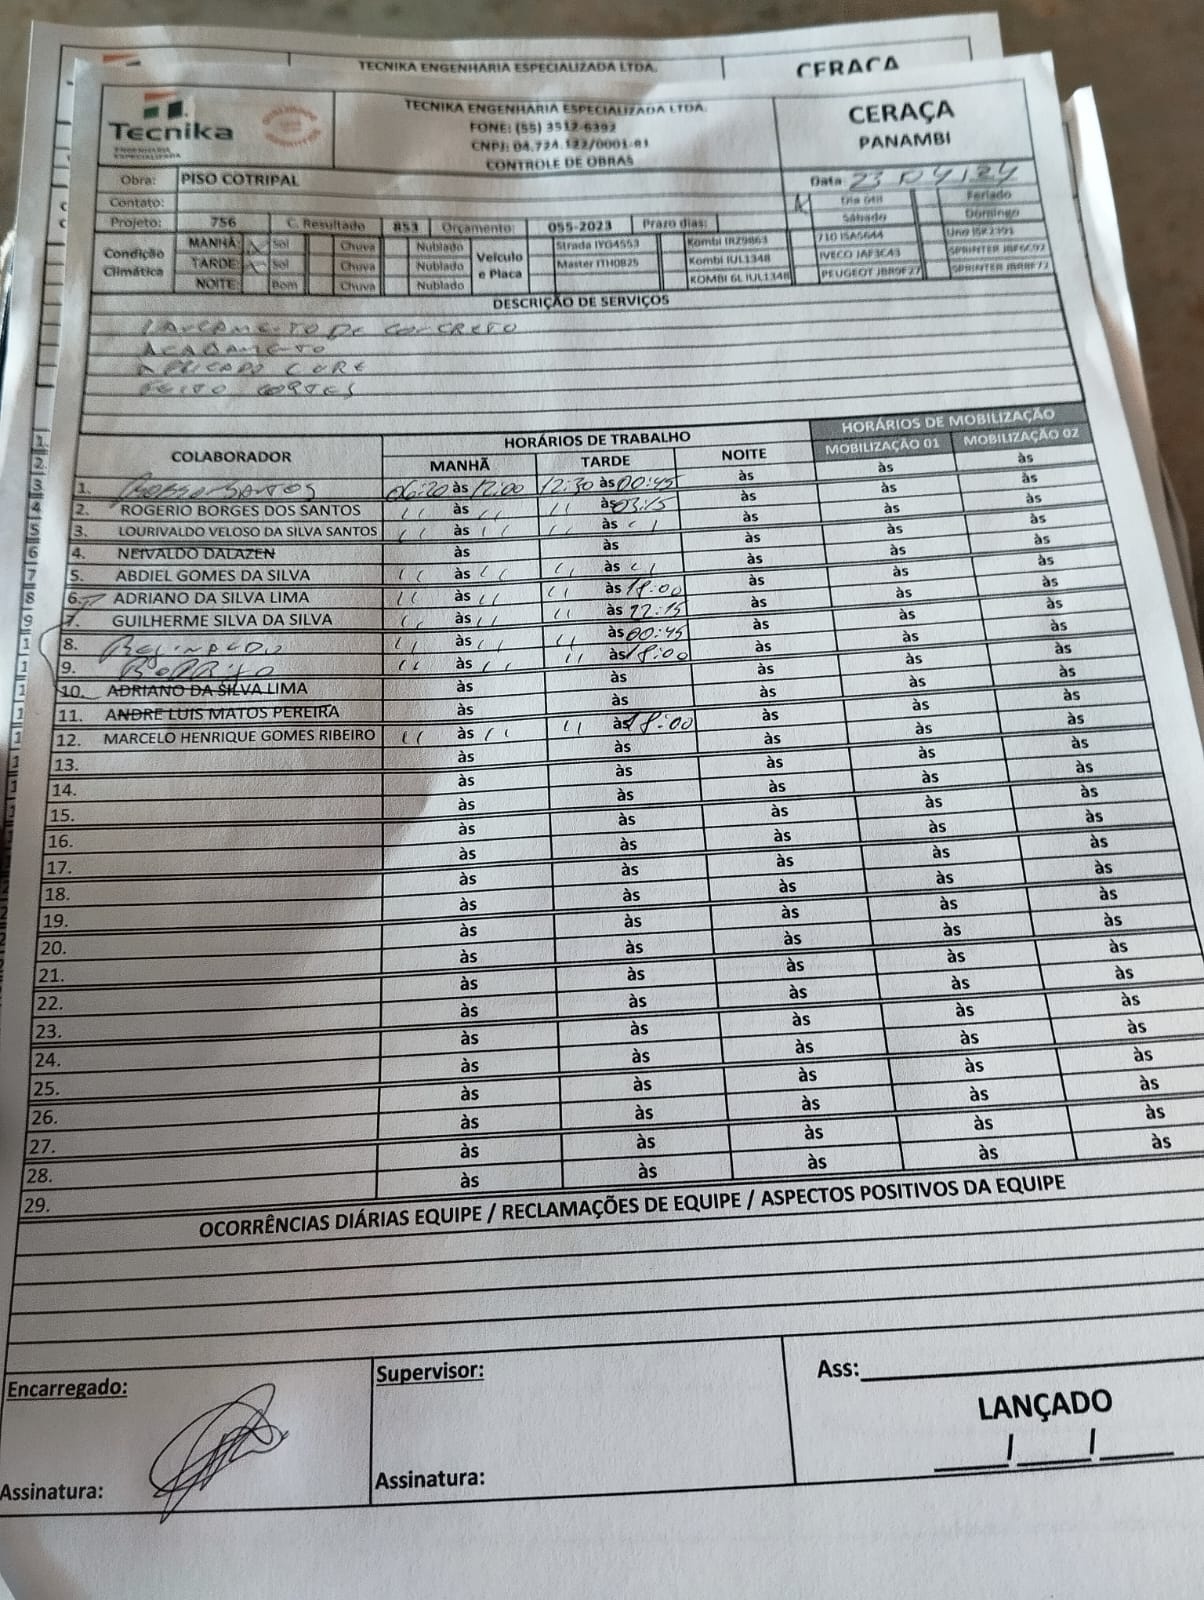 TECNIKA ENGENHARIA ESPECIALIZADA LTDA.
CERAÇA
Tecnika
ENGENHARIA
ESPECIALIZADA
TECNIKA ENGENHARIA ESPECIALIZADA LTDA.
FONE: (55) 3512-6392
CNPJ: 04.724.122/0001-81
CONTROLE DE OBRAS
CERAÇA
PANAMBI
Obra: PISO COTRIPAL
Data 23 04 24
Contato:
Dia útil Feriado
Sábado Domingo
Projeto: 756 C. Resultado 853 Orçamento: 055-2023 Prazo dias:
Condição Climática
MANHÃ: X Sol Chuva Nublado
TARDE: X Sol Chuva Nublado
NOITE: Bom Chuva Nublado
Veículo e Placa
Strada IYG4553 Kombi IRZ9863 710 ISA5644 Uno ISR2393
Master ITH0825 Kombi IUL1348 IVECO JAF3C43 SPRINTER
KOMBI 6L IUL1348 PEUGEOT JBR9F27 SPRINTER
DESCRIÇÃO DE SERVIÇOS
LANÇAMENTO DE CONCRETO
ACABAMENTO
APLICADO CURE
FEITO CORTES
COLABORADOR HORÁRIOS DE TRABALHO HORÁRIOS DE MOBILIZAÇÃO
MANHÃ TARDE NOITE MOBILIZAÇÃO 01 MOBILIZAÇÃO 02
1. SANTOS 06:20 às 12:00 12:30 às 00:45 às às às
2. ROGERIO BORGES DOS SANTOS 11 às 11 11 às 03:15 às às às
3. LOURIVALDO VELOSO DA SILVA SANTOS 11 às 11 11 às 11 às às às
4. NEIVALDO DALAZEN às às às às às
5. ABDIEL GOMES DA SILVA 11 às 11 11 às 11 às às às
6. ADRIANO DA SILVA LIMA 11 às 11 11 às 18:00 às às às
7. GUILHERME SILVA DA SILVA 11 às 11 11 às 22:15 às às às
8. 11 às 11 11 às 00:45 às às às
9. RODRIGO 11 às 11 11 às 18:00 às às às
10. ADRIANO DA SILVA LIMA às às às às às
11. ANDRE LUIS MATOS PEREIRA às às às às às
12. MARCELO HENRIQUE GOMES RIBEIRO 11 às 11 11 às 18:00 às às às
13. às às às às às
14. às às às às às
15. às às às às às
16. às às às às às
17. às às às às às
18. às às às às às
19. às às às às às
20. às às às às às
21. às às às às às
22. às às às às às
23. às às às às às
24. às às às às às
25. às às às às às
26. às às às às às
27. às às às às às
28. às às às às às
29. às às às às às
OCORRÊNCIAS DIÁRIAS EQUIPE / RECLAMAÇÕES DE EQUIPE / ASPECTOS POSITIVOS DA EQUIPE
Encarregado:
Supervisor:
Ass:
LANÇADO
/ /
Assinatura:
Assinatura: